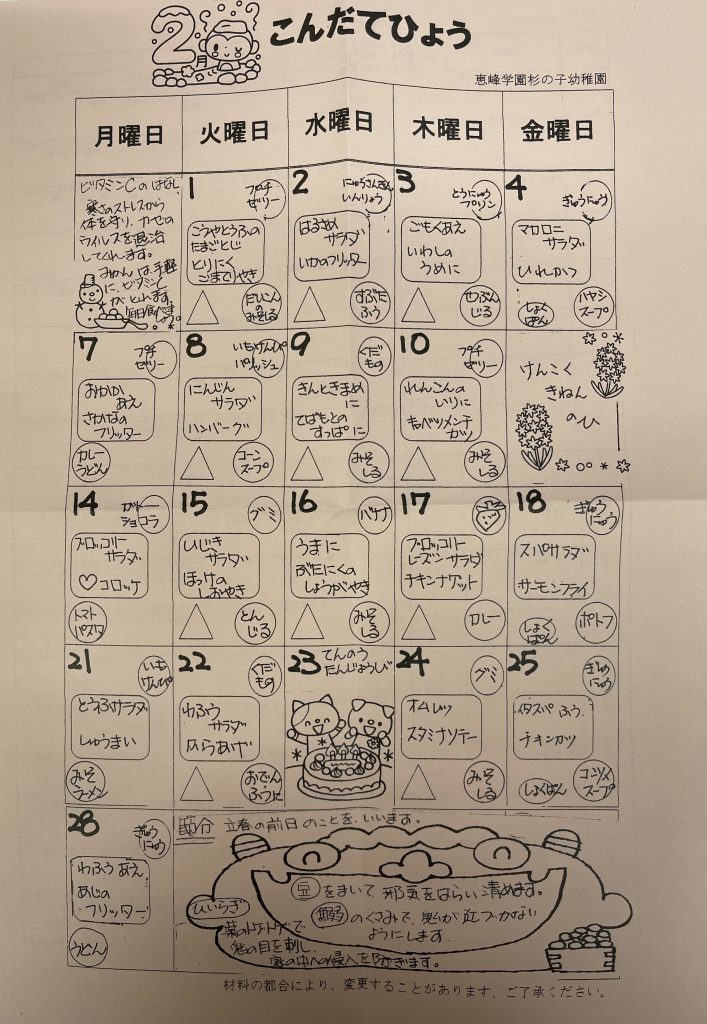 2月
こんだてひょう
恵峰学園杉の子幼稚園
月曜日
火曜日
水曜日
木曜日
金曜日
ビタミンCのはなし
寒さのストレスから
体を守り、カゼの
ウイルスを退治
してくれます。
みかんは手軽
に、ビタミンC
がとれます。
毎日食べま
しょう
1
プチ
ゼリー
こうやとうふの
たまごとじ
とりにく
ごまてりやき
だいこん
のみそしる
2
にゅうさんきん
いんりょう
はるさめ
サラダ
いかのフリッター
すぶた
ふう
3
とうにゅう
プリン
ごもくあえ
いわしの
うめに
せつぶん
じる
4
ぎゅうにゅう
マカロニ
サラダ
ひれかつ
しょく
ぱん
ハヤシ
スープ
7
プチ
ゼリー
おかか
あえ
さかなの
フリッター
カレー
うどん
8
いもけんぴ
ハンバーグ
にんじん
サラダ
コーン
スープ
9
くだ
もの
きんときまめ
に
てばもとの
すっぱに
みそ
しる
10
プチ
ゼリー
れんこんの
いりに
キャベツメンチ
カツ
みそ
しる
けんこく
きねん
のひ
14
ガトー
ショコラ
ブロッコリー
サラダ
コロッケ
トマト
パスタ
15
グミ
ひじき
サラダ
ほっけの
しおやき
とん
じる
16
バナナ
うまに
ぶたにくの
しょうがやき
みそ
しる
17
ブロッコリー
レーズンサラダ
チキンナゲット
カレー
18
ぎゅう
にゅう
スパサラダ
サーモンフライ
しょく
ぱん
ポトフ
21
いも
けんぴ
とうふサラダ
しゅうまい
みそ
ラーメン
22
くだ
もの
わふう
サラダ
からあげ
おでん
ふうに
23
てんのう
たんじょうび
24
グミ
オムレツ
スタミナソテー
みそ
しる
25
ぎゅう
にゅう
イタスパふう
チキンカツ
しょくぱん
コンソメ
スープ
28
ぎゅう
にゅう
わふうあえ
あじの
フリッター
うどん
節分 立春の前日のことをいいます。
豆をまいて、邪気をはらい清めます。
鰯のくさみで、鬼が近づかない
ようにします。
ひいらぎ
葉のトゲトゲで
鬼の目を刺し、
家の中への侵入を防ぎます。
材料の都合により、変更することがあります、ご了承ください。